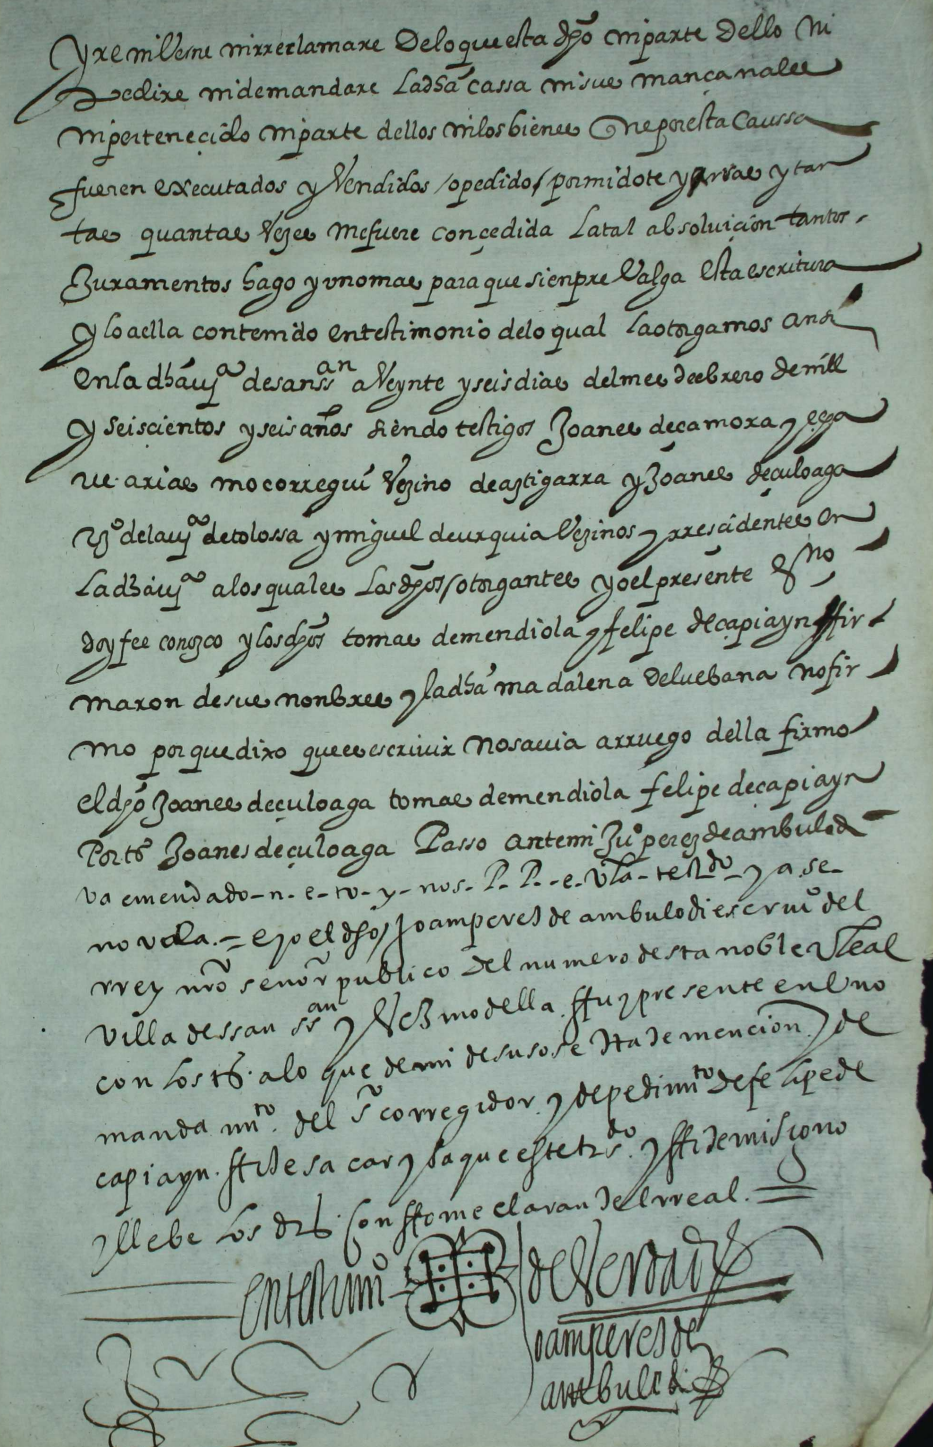 y re mi verne ni rreclamare de lo que esta dho ni parte dello ni
pedire ni demandare la dha cassa ni sus mançanales
ni perteneçido ni parte dellos ni los bienes que por esta caussa
fueren executados y vendidos / o pedidos / por mi dote y arras y tan
tas quantas vezes me fuere conçedida la tal absoluiçion tantos
Juramentos hago y uno mas para que sienpre valga esta escritura
y lo a ella contenido en testimonio de lo qual la otorgamos ansi
en la dha uya de san ssan a veynte y seis dias del mes de ebrero de mill
y seiscientos y seis años siendo testigos Joanes de çamora y
ue arias mocorregui vezino de aztigarra y Joanes de çuloaga
vzo de la uya de tolossa y miguel de urquia vezinos y rresidentes en
la dha uya a los quales los dhos / otorgantes yo el presente esno
doy fee conozco y los dhos tomas de mendiola y felipe de capiayn ffir
maron de sus nonbres y la dha madalena de luebana no fir
mo por que dixo que escriuir no sauia a rruego della firmo
el dho Joanes de çuloaga tomas de mendiola felipe de çapiayn
Por ts Joanes de çuloaga Passo ante mi Juo perez de ambulodi
va emendado - n. e - to - y - nos - P. P. - e - vla - testdo - y a. se -
no vala. - e yo el dho Joamperes de ambulodi escriuo del
rrey nro señor publico del numero desta noble y leal
villa de ssan ssan y vezino della ffuy presente en uno
con los ts. a lo que de mi de suso se ffa de mencion. y de
mandamto. del sr corregidor. y de pedimto de felipe de
capiayn. ffize sacar y saque este trsdo. y ffize mi signo
y llebe los drs. conffome el aranzel rreal.
en testimo de verdad
Joamperes de
ambulodi